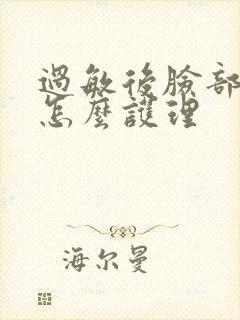 過敏後臉部
怎麼護理
海尔曼